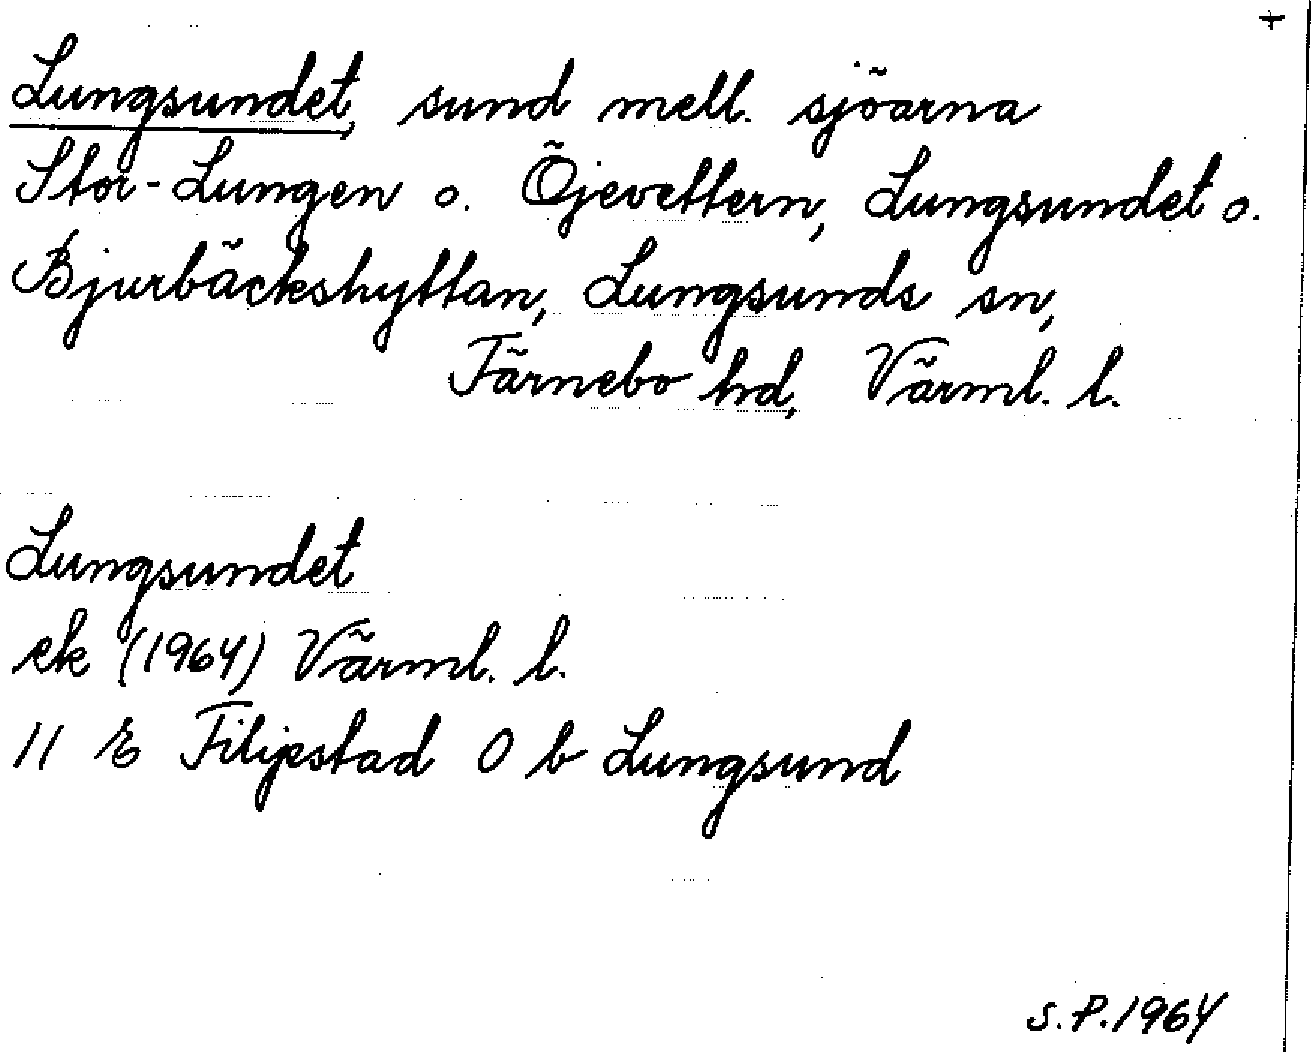 +
Lungsundet, sund mell. sjöarna
Stor-Lungen o. Öjevettern, Lungsundet o.
Bjurbäckshyttan, Lungsunds sn,
Färnebo hd, Värml. l.
Lungsundet
ek (1964) Värml. l.
11 E Filipstad 0 b Lungsund
S.P. 1964